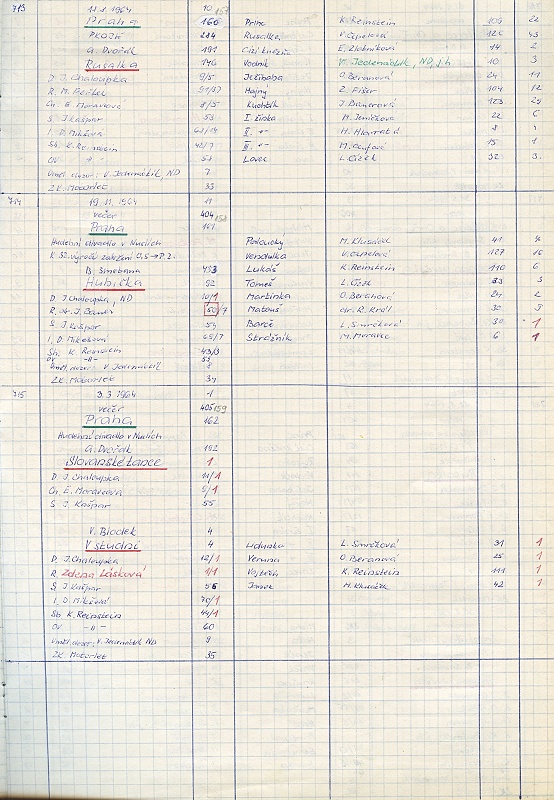 713 11.1.1964 10 157
Praha 160 Princ K. Reinstein 109 22
PKOJF Rusalka V. Čepelová 126 43
A. Dvořák 191 Cizí kněžna E. Zlobníková 14 2
Rusalka 146 Vodník V. Jedenáctík, ND, j.h. 10 3
D. J. Chaloupka 9/5 Ježibaba O. Beranová 24 11
Hajný Z. Fišer 104 12
Ch. E. Moravcová 8/5 Kuchtík J. Bauerová 123 24
S. J. Kašpar 53 I. žínka M. Jeničková 22 6
I. D. Mikšová II. -"-
Sb. K. Reinstein III. -"- 15 1
Ov. -"- 57 Lovec L. Cízek 32 3
Uměl. dozor: V. Jedenáctík, ND 7
Zk. Matorlec 33
714 19.11.1964 11
večer 404 158
Praha 161
Hudební divadlo v Nuslích Palouký M. Klusáček 41 4
Vendulka V. Čepelová 127 16
B. Smetana 493 Lukáš K. Reinstein 110 6
Hubička 92 Tomeš L. Cízek 33 3
D. J. Chaloupka, ND 10/1 Martinka O. Beranová 24 2
R. dr. J. Bauer 50/7 Matouš dr. R. Král 30 3
S. J. Kašpar 54 Barče L. Smrčková 30 1
I. D. Mikešová 69/7 Strážník M. Moravec 6 1
Sb. K. Reinstein 43/3
Ov. -"- 59
Uměl. dozor: V. Jedenáctík 8
Zk. Matorlec 34
715 3.3.1964 1
večer 405 159
Praha 162
Hudební divadlo v Nuslích
A. Dvořák 192
Slovanské tance 1
D. J. Chaloupka 11/1
Ch. E. Moravcová 9/1
S. J. Kašpar 55
V. Blodek 4
V studni 4 Lidunka L. Smrčková 31 1
D. J. Chaloupka 12/1 Veruna O. Beranová 25 1
R. Zdena Lásková 1/1 Vojtěch K. Reinstein 111 1
S. J. Kašpar 56 Janek M. Klusáček 42 1
I. D. Mikšová 70/1
Sb. K. Reinstein 44/1
Ov. -"- 60
Uměl. dozor: V. Jedenáctík ND 9
Zk. Matorlet 35